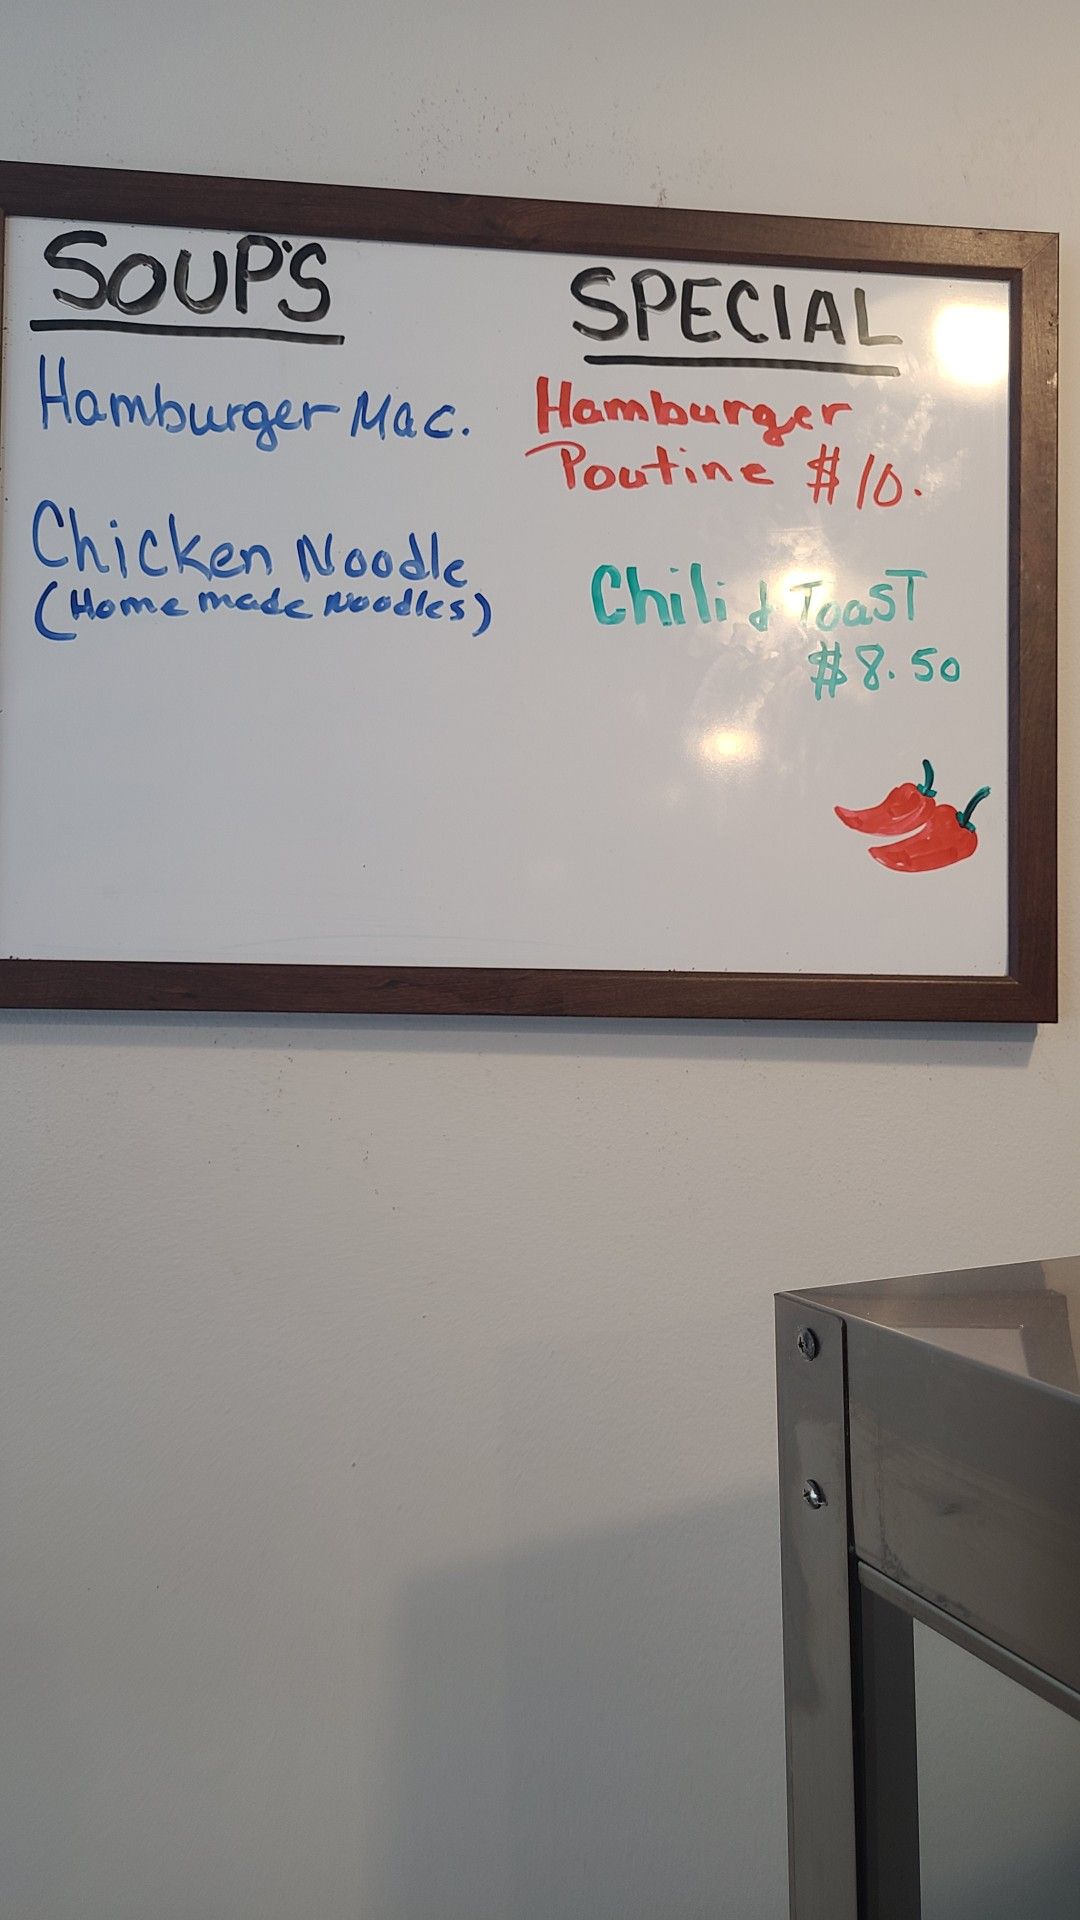 SOUP'S
Hamburger Mac.
Chicken Noodle
(Homemade Noodles)
SPECIAL
Hamburger
Poutine $10.
Chili & Toast
$8.50